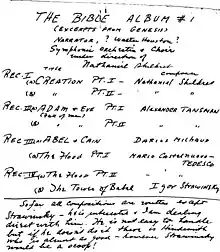 THE BIBLE ALBUM #1
(EXCERPTS FROM GENESIS)
NARRATOR, ? Walter Houston?
Symphonic orchestra & Choir
under direction of
Nathaniel Shilkret
TITLE composer
REC I (a) CREATION Pt. I - Nathaniel Shilkret
(b) " Pt II - "
REC II (a) ADAM & EVE Pt I ALEXANDER TANSMAN
" "
REC III (a) ABEL & CAIN DARIUS MILHAUD
(b) The Flood PT. I MARIO CASTELNUOVO-
TEDESCO
REC IV (a) The Flood PT II "
(b) The Tower of Babel Igor STRAVINSKY
So far all compositions are written except
Stravinsky - his contracts & I am dealing
direct with him. He is not easy to handle
but if he doesn't do it there is Hindemith
who is almost as good & however, Stravinsky
would be a scoop!